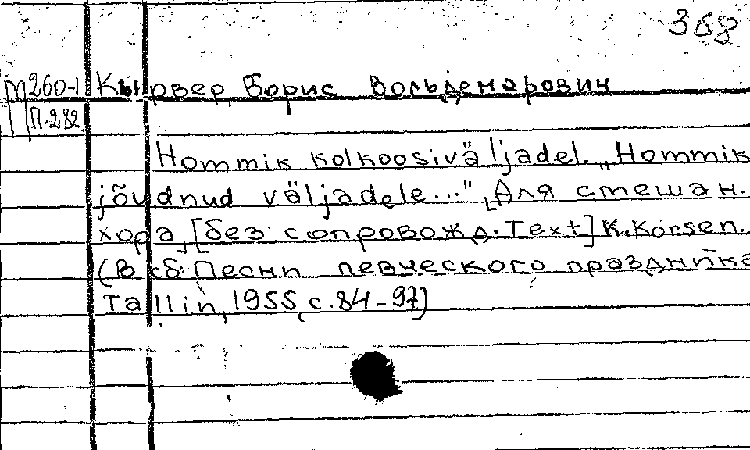 368
М260-1 Кырвер, Борис Вольдемарович
П-282
Hommik kolkoosiväljadel. „Hommik
jõudnud väljadele..." [Для смешан.
хора, [без сопровожд. Text] K. Korsen.
(В сб: Песни певческого праздника
Tallin, 1955, с. 84-97)